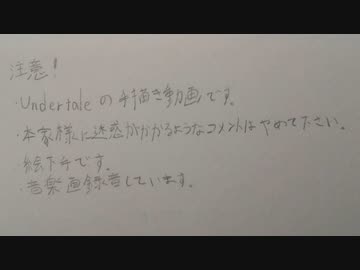 注意!
・Undertaleの手描き動画です。
・本家様に迷惑がかかるようなコメントはやめて下さい。
・絵下手です。
・音楽画録音しています。